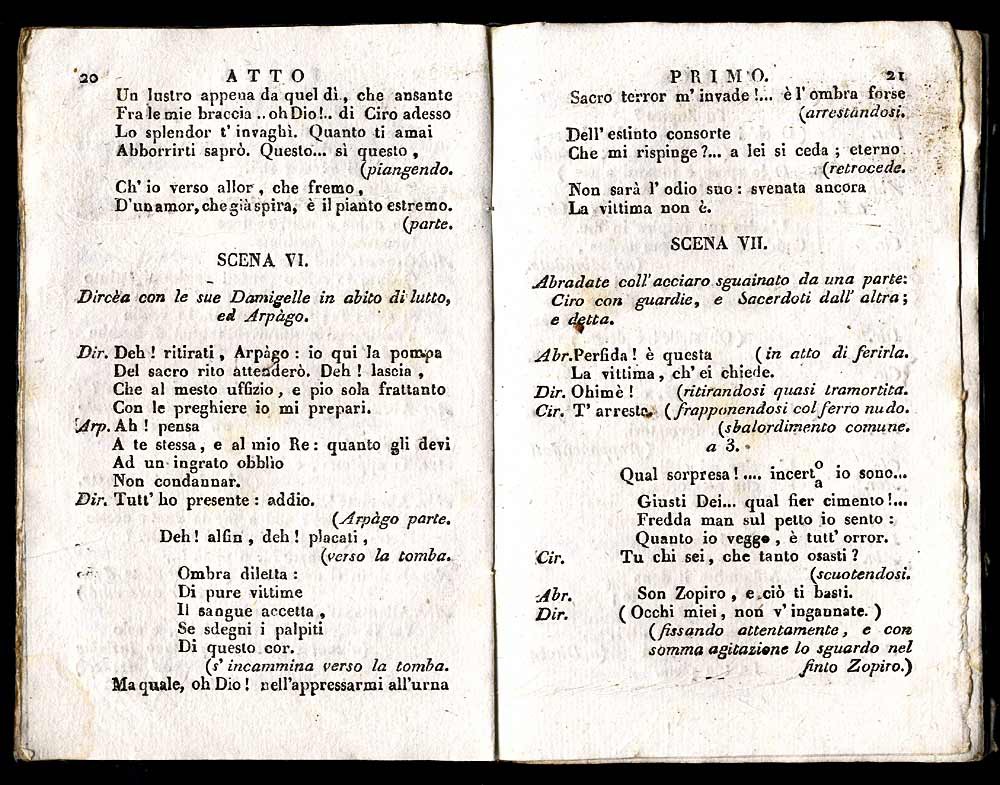 20 ATTO
Un lustro appena da quel dì, che ansante
Fra le mie braccia .. oh Dio!.. di Ciro adesso
Lo splendor t' invaghì. Quanto ti amai
Abborrirti saprò. Questo... sì questo,
(piangendo.
Ch' io verso allor, che fremo,
D'un amor, che già spira, è il pianto estremo.
(parte.
SCENA VI.
Dircèa con le sue Damigelle in abito di lutto,
ed Arpàgo.
Dir. Deh! ritirati, Arpàgo: io qui la pompa
Del sacro rito attenderò. Deh! lascia,
Che al mesto uffizio, e pio sola frattanto
Con le preghiere io mi prepari.
Arp. Ah! pensa
A te stessa, e al mio Re: quanto gli devi
Ad un ingrato obblìo
Non condannar.
Dir. Tutt' ho presente: addio.
(Arpàgo parte.
Deh! alfin, deh! placati,
(verso la tomba.
Ombra diletta:
Di pure vittime
Il sangue accetta,
Se sdegni i palpiti
Di questo cor.
(s' incammina verso la tomba.
Ma quale, oh Dio! nell'appressarmi all'urna
PRIMO. 21
Sacro terror m' invade!... è l' ombra forse
(arrestandosi.
Dell' estinto consorte
Che mi rispinge?... a lei si ceda; eterno
(retrocede.
Non sarà l' odio suo: svenata ancora
La vittima non è.
SCENA VII.
Abradate coll' acciaro sguainato da una parte:
Ciro con guardie, e Sacerdoti dall' altra;
e detta.
Abr. Perfida! è questa (in atto di ferirla.
La vittima, ch' ei chiede.
Dir. Ohimè! (ritirandosi quasi tramortita.
Cir. T' arresta. (frapponendosi col ferro nudo.
(sbalordimento comune.
a 3.
Qual sorpresa!.... incert o/a io sono...
Giusti Dei... qual fier cimento!...
Fredda man sul petto io sento:
Quanto io veggo, è tutt' orror.
Cir. Tu chi sei, che tanto osasti?
(scuotendosi.
Abr. Son Zopiro, e ciò ti basti.
Dir. (Occhi miei, non v' ingannate.)
(fissando attentamente, e con
somma agitazione lo sguardo nel
finto Zopiro.)